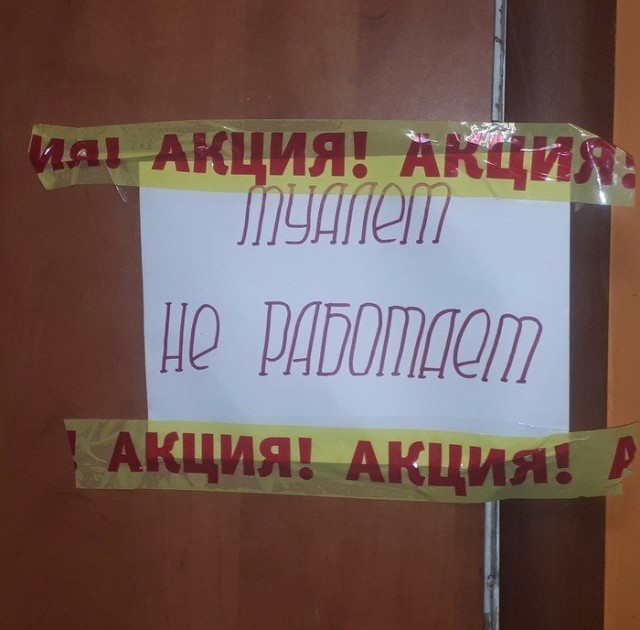 ия! АКЦИЯ! АКЦИЯ!
туалет
не работает
! АКЦИЯ! АКЦИЯ! А